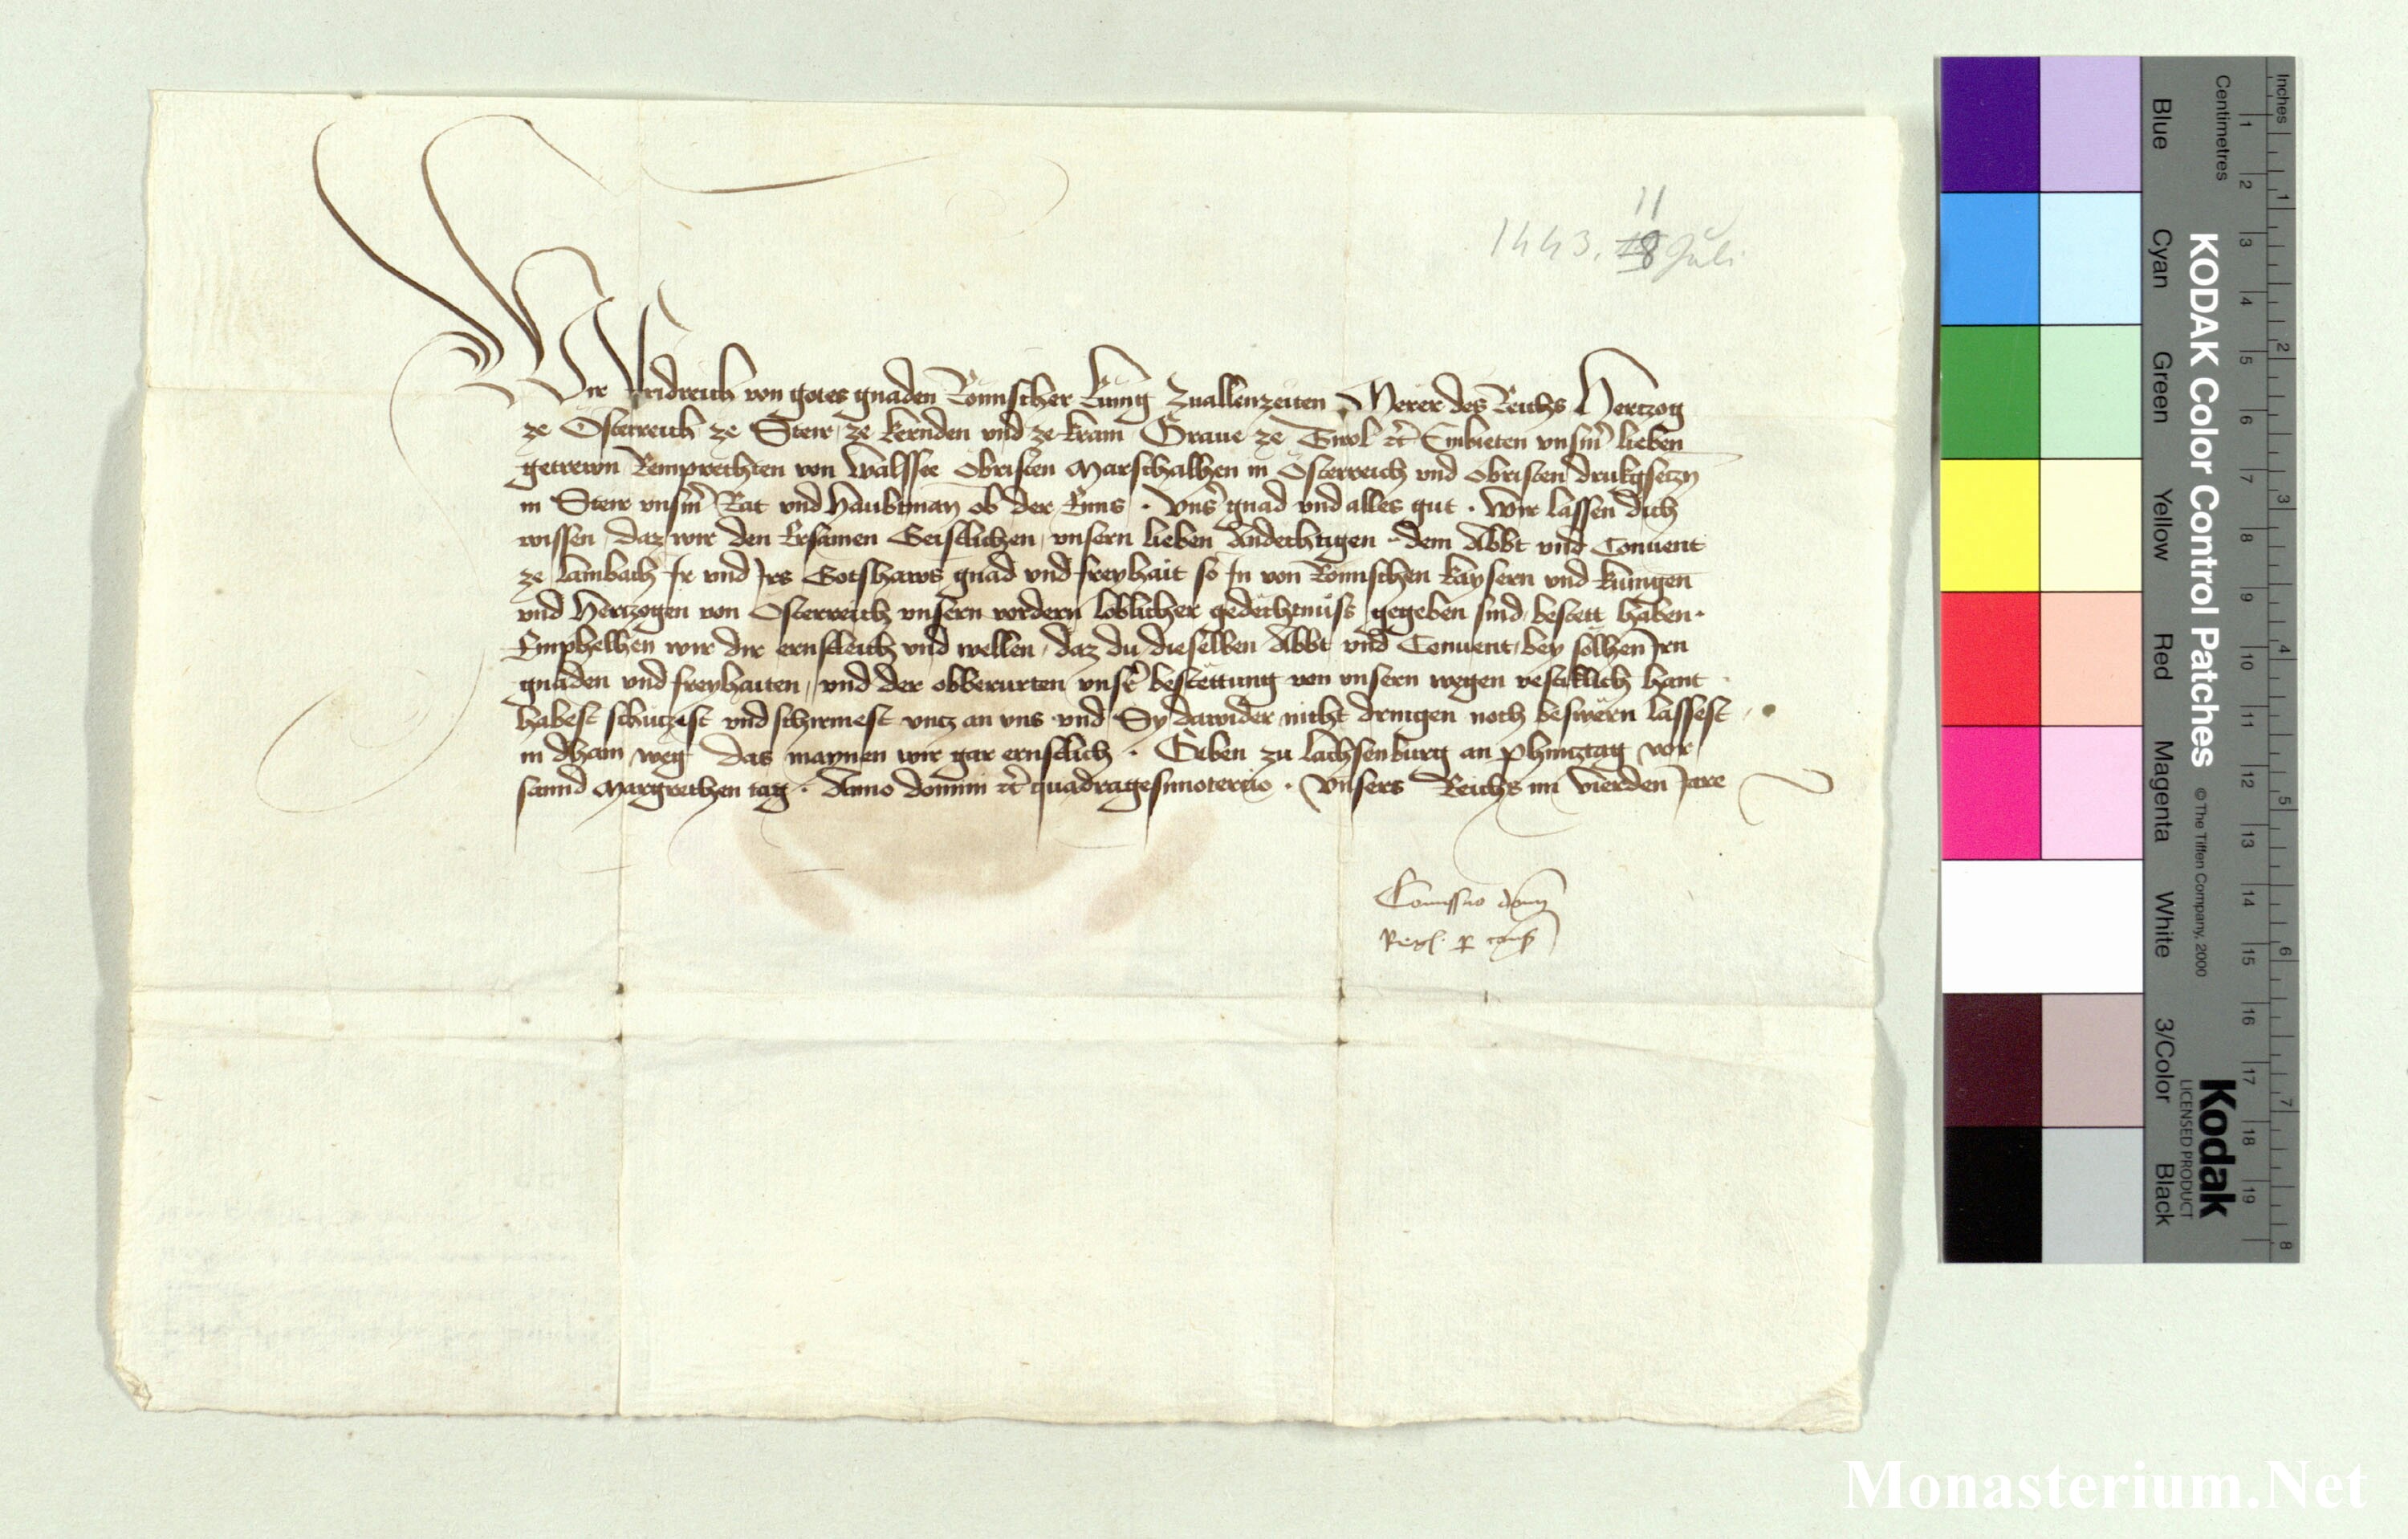 11
1443. 18 Juli
Wir Fridreich von gotes gnaden Römischer Kunig Zuallenzeiten Merer des Reichs Hertzog
ze Österreich ze Steir ze Kernden vnd ze Krain Graue ze Tirol etc Embieten vnserm lieben
getrewn Remprechten von Wallsee Obristen Marschalhen in Österreich vnd Obristen drukgsetzn
in Steir vnserm Rat vnd Haubtman ob der Enns · Vnser gnad vnd alles gut · Wir lassen dich
wissen daz wir den Ersamen Geistlichen vnsern lieben Andechtigen dem Abbt vnd Conuent
ze Lambach Ir vnd Irs Gotshaws gnad vnd freyhait so In von Römischen Kaysern vnd Kunigen
vnd Hertzogen von Österreich vnsern vordern loblicher gedechtnüss gegeben sind bestett haben ·
Emphelhen wir dir ernstleich vnd wellen daz du dieselben Abbt vnd Conuent bey solhen Irn
gnaden vnd freyhaiten vnd der obberurten vnsrer bestettung von vnsern wegen vesticklich hant
habest schutzest vnd schirmest vntz an vns vnd Sy dawider nicht dringen noch beswern lassest
in dhain weg Das maynen wir gar ernstlich · Geben zu Lachsenburg an Phintztag vor
sannd Margrethen tag · Anno domini etc quadragesimotercio · Vnsers Reichs im Vierden Jare
Comissio domini
Regis per cons
Inches
Centimetres
KODAK Color Control Patches
© The Tiffen Company, 2000
Kodak
LICENSED PRODUCT
Blue
Cyan
Green
Yellow
Red
Magenta
White
3/Color
Black
1 2 3 4 5 6 7 8 9 10 11 12 13 14 15 16 17 18 19
1 2 3 4 5 6 7 8
Monasterium.Net